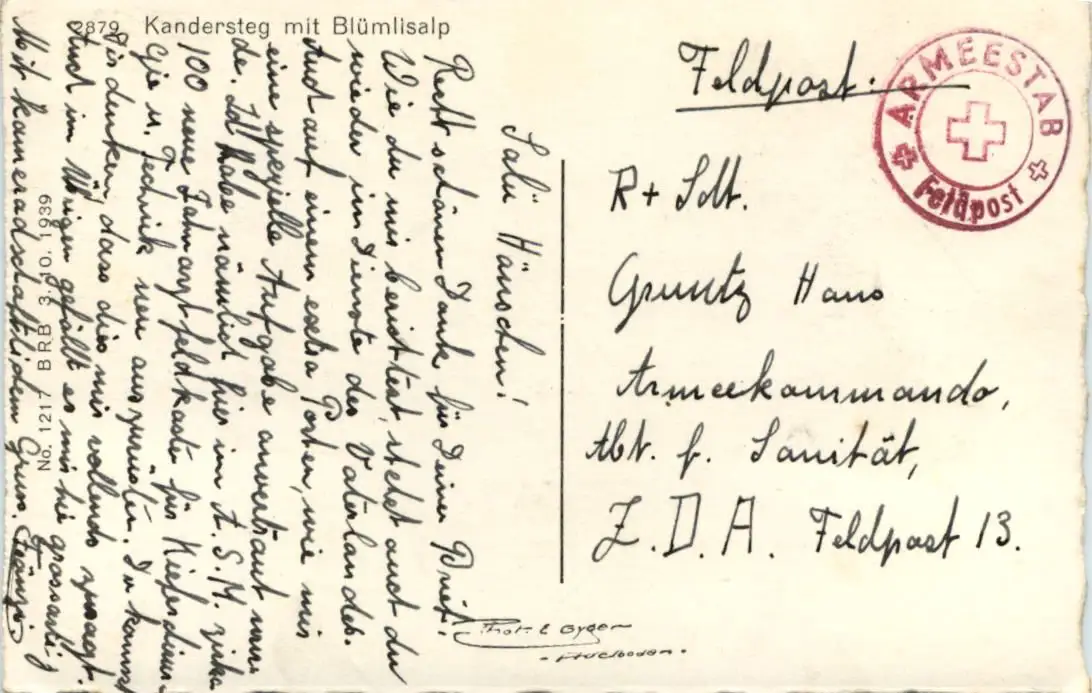 2879 Kandersteg mit Blümlisalp
Salü Hänschen!
Recht schönen Dank für Deinen Brief.
Wie du mir berichtest, stehst auch du
wieder im Dienste des Vaterlandes.
Auch auf einem extra Posten, wie mir
eine spezielle Aufgabe anvertraut wur-
de. Ich habe nämlich hier im A.S.M. zirka
100 neue Zahnarztfeldkasten für Kieferchirur-
gie u. Technik neu auszurüsten. Du kannst
Dir denken, dass dies mir vollends zusagt.
Auch im Übrigen gefällt es mir hie grossartig
Mit kameradschaftlichem Gruss
No. 1217 BRB 3.10.1939
Feldpost.
ARMEESTAB
Feldpost
R+ Sdt.
Gruntz Hans
Armeekommando,
Abt. f. Sanität,
Z.D.A. Feldpost 13.
Phot. E Gyger
Adelboden.